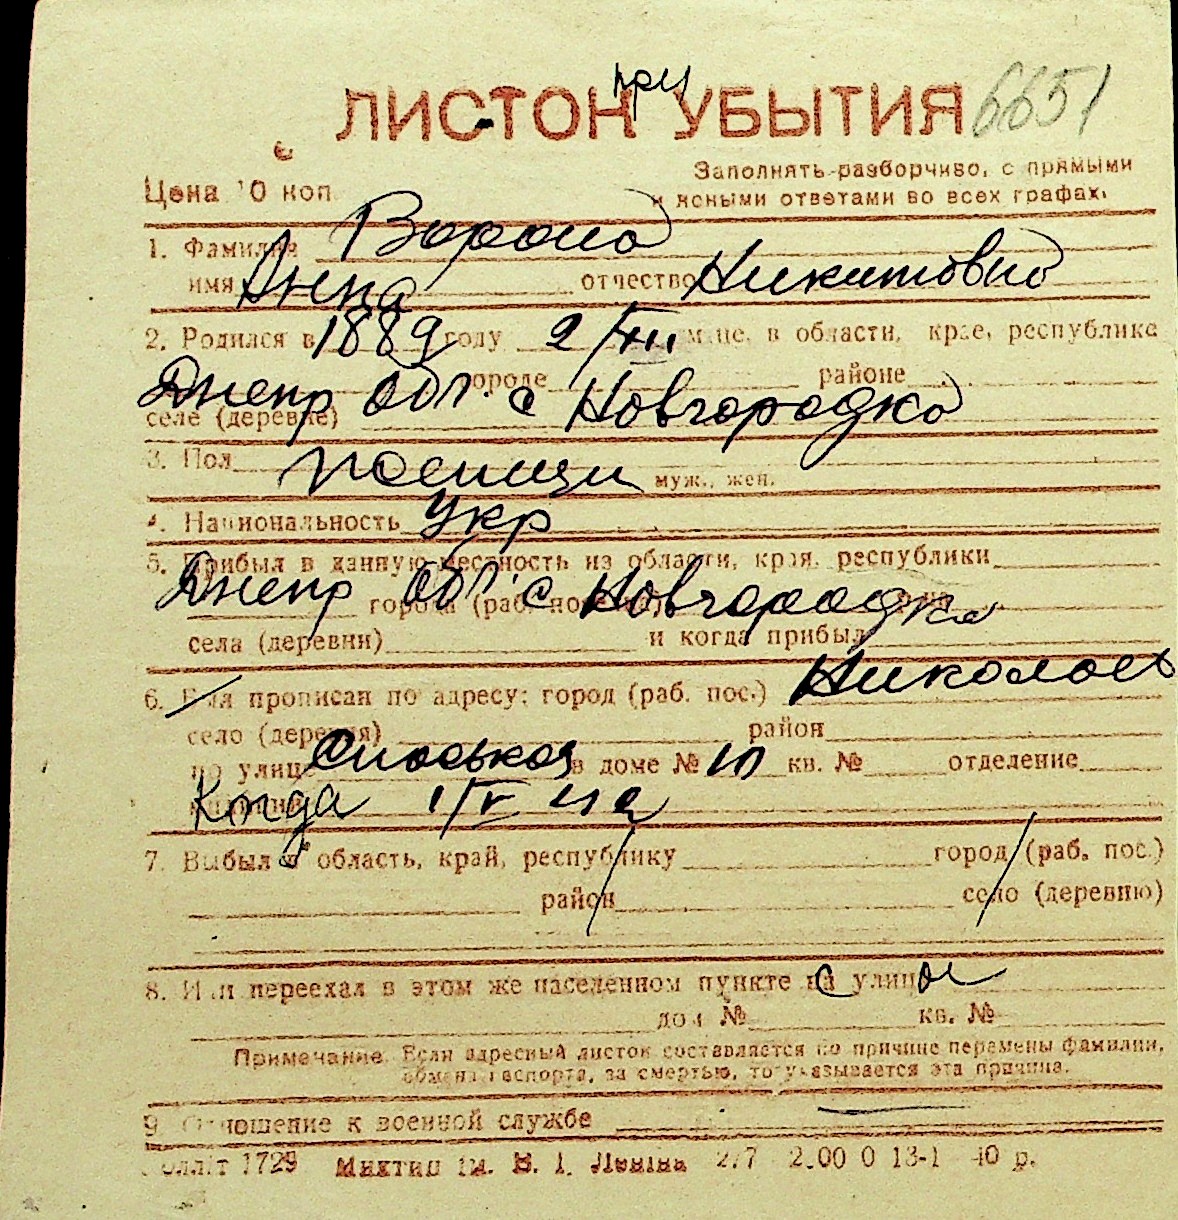 при
ЛИСТОК УБЫТИЯ 6651
Цена 10 коп. Заполнять разборчиво, с прямыми
и ясными ответами во всех графах.
1. Фамилия Ворона
имя Анна отчество Никитовна
2. Родился в 1889 году 2/XII м-це, в области, крае, республике
городе районе
Днепр Обл. с Новгородка
селе (деревне)
3. Пол женщи муж., жен.
4. Национальность Укр
5. Прибыл в данную местность из области, края, республики
Днепр Обл. с Новгородка
города (раб. поселка)
села (деревни) и когда прибыл
6. Был прописан по адресу: город (раб. пос.) Николаев
село (деревня) район
по улице в доме № кв. № отделение
Когда 1/IV
7. Выбыл в область, край, республику город (раб. пос.)
район село (деревню)
8. Или переехал в этом же населенном пункте с улицы
дом № кв. №
Примечание. Если адресный листок составляется по причине перемены фамилии,
обмена паспорта, за смертью, то указывается эта причина.
9. Отношение к военной службе
1729 им. В. И. Ленина 2.00 0 13-1 40 р.